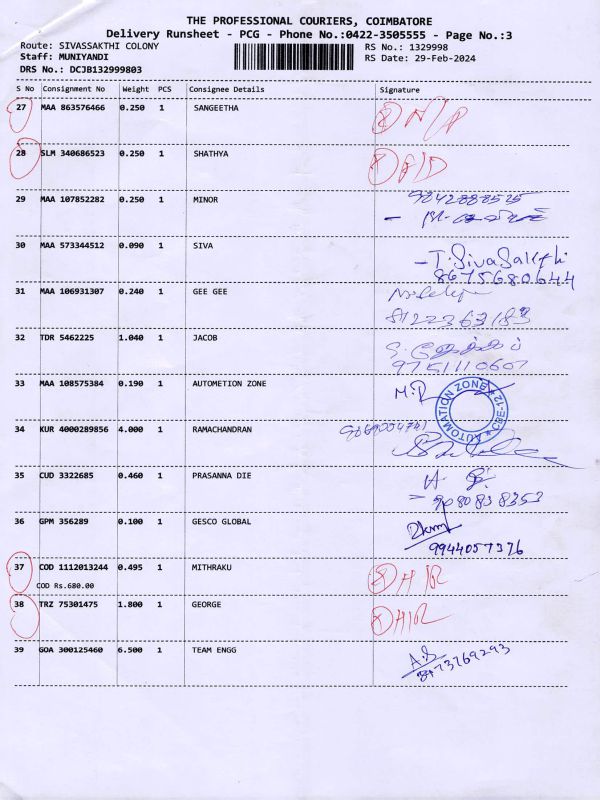 THE PROFESSIONAL COURIERS, COIMBATORE
Delivery Runsheet - PCG - Phone No.:0422-3505555 - Page No.:3
Route: SIVASSAKTHI COLONY RS No.: 1329998
Staff: MUNIYANDI RS Date: 29-Feb-2024
DRS No.: DCJB132999803
S No Consignment No Weight PCS Consignee Details Signature
27 MAA 863576466 0.250 1 SANGEETHA N/P
28 SLM 340686523 0.250 1 SHATHYA
29 MAA 107852282 0.250 1 MINOR 9842888525
30 MAA 573344512 0.090 1 SIVA - T. Siva Sakthi
8675680644
31 MAA 106931307 0.240 1 GEE GEE
8122363183
32 TDR 5462225 1.040 1 JACOB
9751110607
33 MAA 108575384 0.190 1 AUTOMETION ZONE M.P AUTOMATION ZONE * CBE-12 *
34 KUR 4000289856 4.000 1 RAMACHANDRAN
35 CUD 3322685 0.460 1 PRASANNA DIE
9080838353
36 GPM 356289 0.100 1 GESCO GLOBAL
9944057376
37 COD 1112013244 0.495 1 MITHRAKU
COD Rs.680.00
38 TRZ 75301475 1.800 1 GEORGE
39 GOA 300125460 6.500 1 TEAM ENGG A.S